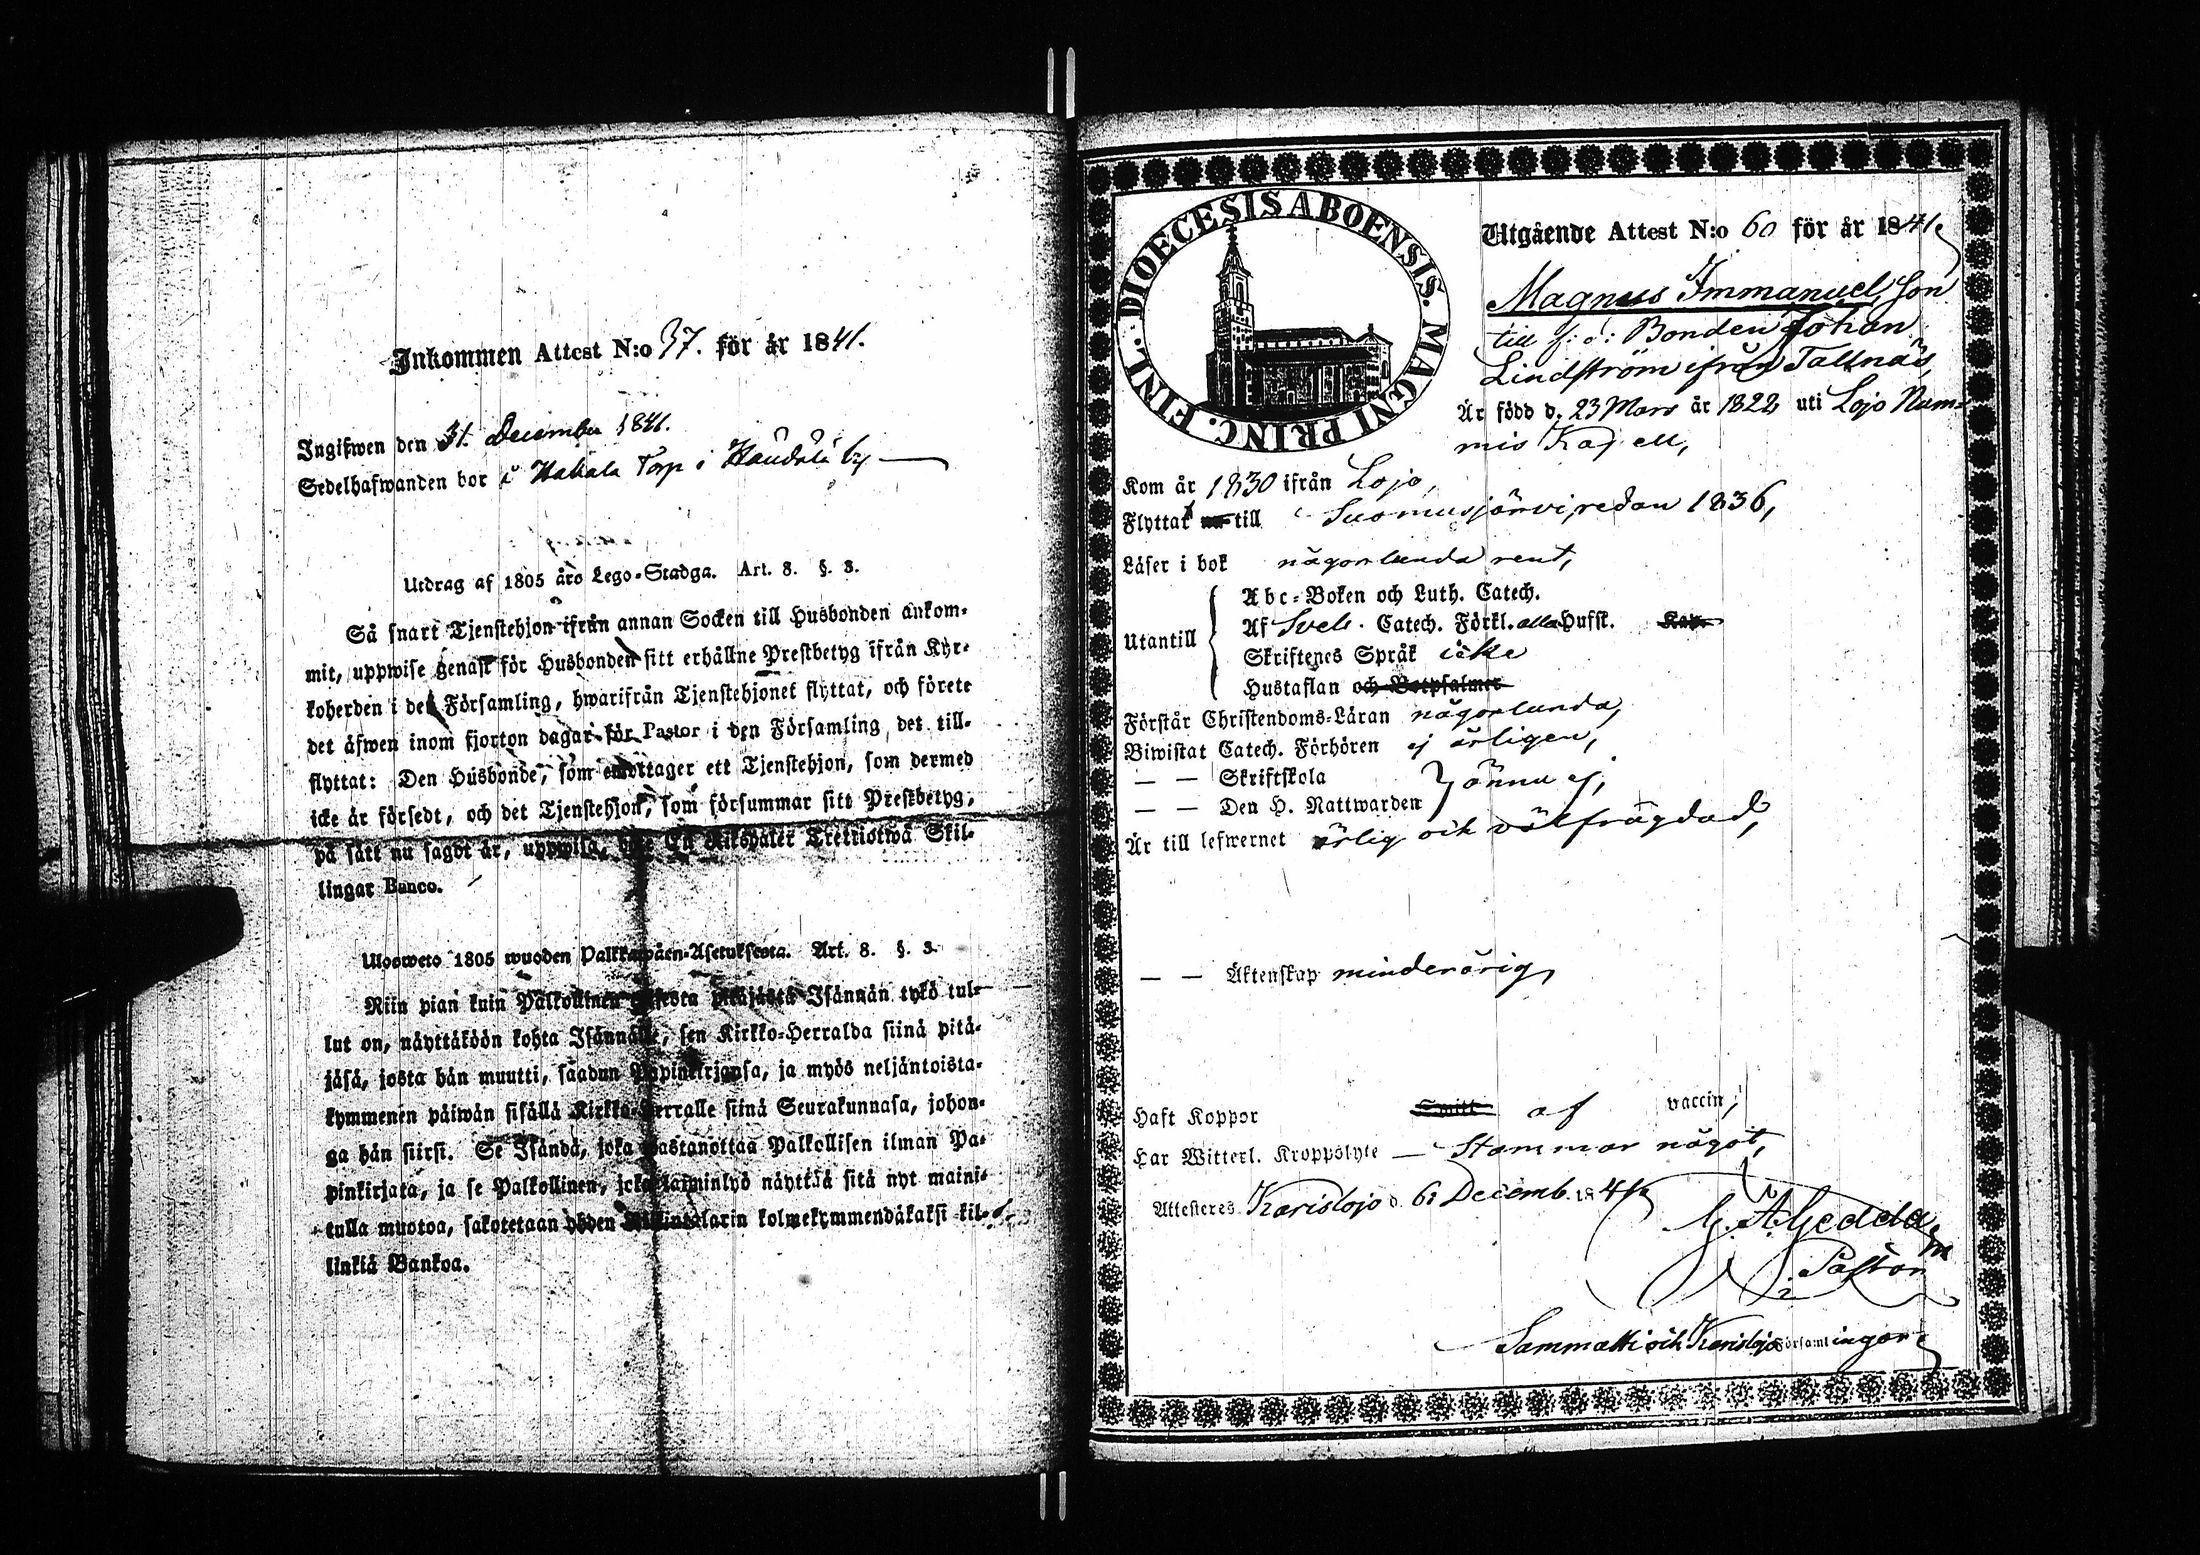 Inkommen Attest N:o 37. för år 1841.
Ingifwen den 31. December 1841.
Sedelhafwanden bor i Torp i by
Utdrag af 1805 års Lego-Stadga. Art. 8. §. 3.
Så snart Tjenstehjon ifrån annan Socken till Husbonden ankom-
mit, uppwise genast för Husbonden sitt erhållne Prestbetyg ifrån Kyr-
koherden i den Församling, hwarifrån Tjenstehjonet flyttat, och förete
det äfwen inom fjorton dagar för Pastor i den Församling, det till-
flyttat: Den Husbonde, som emottager ett Tjenstehjon, som dermed
icke är försedt, och det Tjenstehjon, som försummar sitt Prestbetyg,
på sätt nu sagdt är, uppwisa, böte En Riksdaler Trettiotwå Skil-
lingar Banco.
Ulosweto 1805 wuoden Palkkawäen-Asetuksesta. Art. 8. §. 3.
Niin pian kuin Palkollinen toisesta pitäjästä Isännän tykö tul-
lut on, näyttäköön kohta Isännälle, sen Kirkko-Herralda siinä pitä-
jäsä, josta hän muutti, saadun Papinkirjansa, ja myös neljäntoista-
kymmenen päiwän sisällä Kirkko-Herralle siinä Seurakunnasa, johon-
ga hän siirsi. Se Isändä, joka wastanottaa Palkollisen ilman Pa-
pinkirjata, ja se Palkollinen, joka laiminlyö näyttää sitä nyt maini-
tulla muotoa, sakotetaan yhden Riksintalarin kolmekymmendäkaksi kil-
linkiä Bankoa.
DIOECESIS ABOENSIS. MAGNI PRINC. FINL.
Utgående Attest N:o 60 för år 1841.
Magnus Immanuel, son
till f: d: Bonden Johan
Lindström ifrån Tallnäs,
Är född d. 23 Mars år 1822 uti Lojo Num-
mis Kapell,
Kom år 1830 ifrån Lojo,
Flyttat till Suomusjärvi, redan 1836,
Läser i bok någorlunda rent,
Utantill
Abc-Boken och Luth. Catech.
Af Sveb. Catech. Förkl. alla Hufst. Kap.
Skriftenes Språk icke
Hustaflan och Botpsalmer
Förstår Christendoms-Läran någorlunda,
Biwistat Catech. Förhören ej årligen,
— — Skriftskola
— — Den H. Nattwarden } ännu ej,
Är till lefwernet ärlig och välfrägdad,
— — Äktenskap minderårig,
Haft Koppor af vaccin,
Har Witterl. Kroppslyte — Stammar något,
Attesteras Karislojo d. 6: Decemb. 1841,
G. A. Gedda
Pastor
i
Sammatti och Karislojo Församlingar.